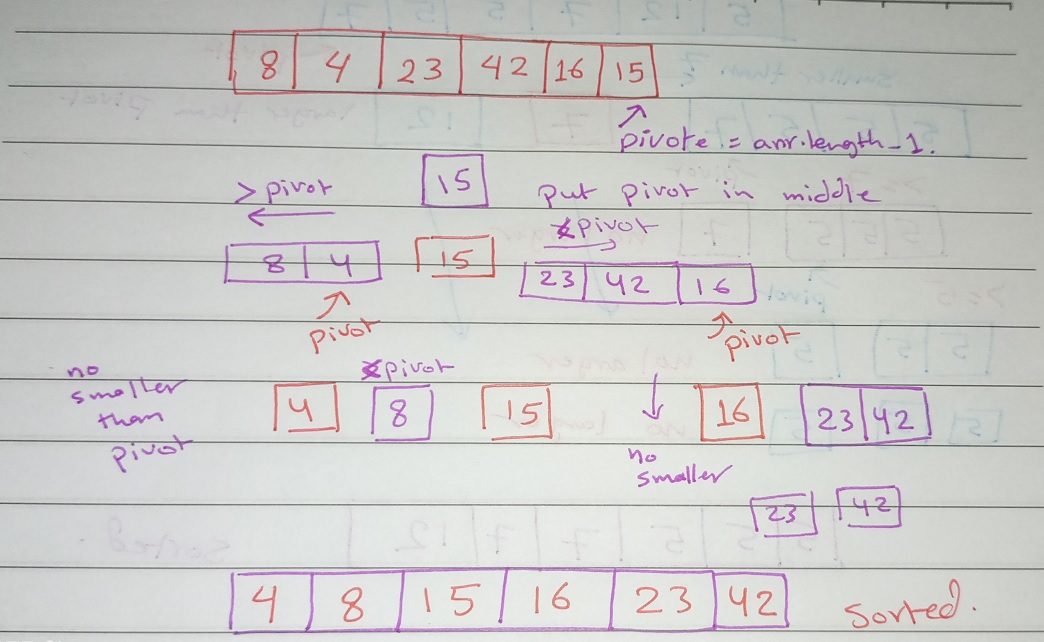 8 4 23 42 16 15
pivote = arr.length-1.
> pivot 15 put pivot in middle
pivot
8 4 15 23 42 16
pivot pivot
no smaller than pivot
pivot
4 8 15 16 23 42
no smaller
23 42
4 8 15 16 23 42 sorted.